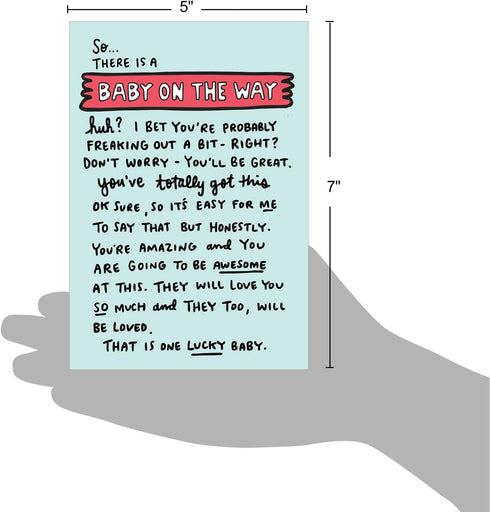 5"
So...
THERE IS A
BABY ON THE WAY
huh? I BET YOU'RE PROBABLY
FREAKING OUT A BIT - RIGHT?
DON'T WORRY - YOU'LL BE GREAT.
you've totally got this
OK SURE, SO IT'S EASY FOR ME
TO SAY THAT BUT HONESTLY.
YOU'RE AMAZING and YOU
ARE GOING TO BE AWESOME
AT THIS. THEY WILL LOVE YOU
SO MUCH and THEY TOO, WILL
BE LOVED.
THAT IS ONE LUCKY BABY.
7"